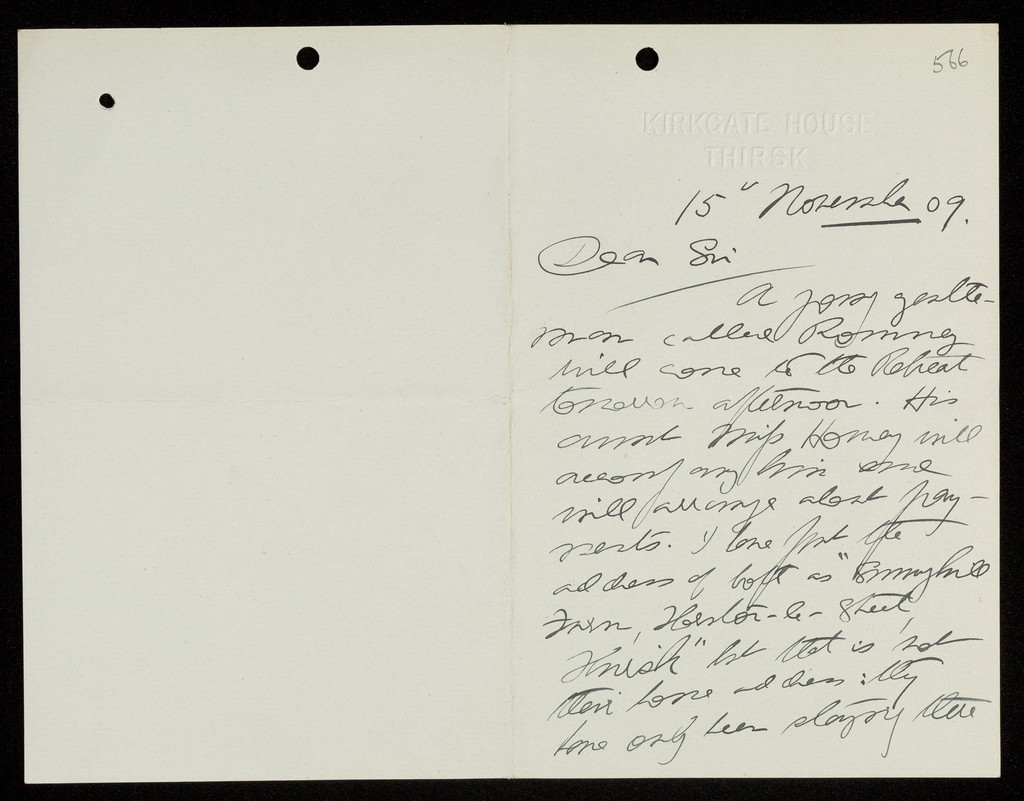 566
KIRKGATE HOUSE
THIRSK
15" November 09.
Dear Sir
A young gentle-
man called Romney
will come to the Retreat
tomorrow afternoon. His
aunt Miss Honey will
accompany him and
will arrange about pay-
ments. I have put the
address of both as "Sunnyhill
Farm, -le-Street,
Thirsk" but that is not
their home address: they
have only been staying there